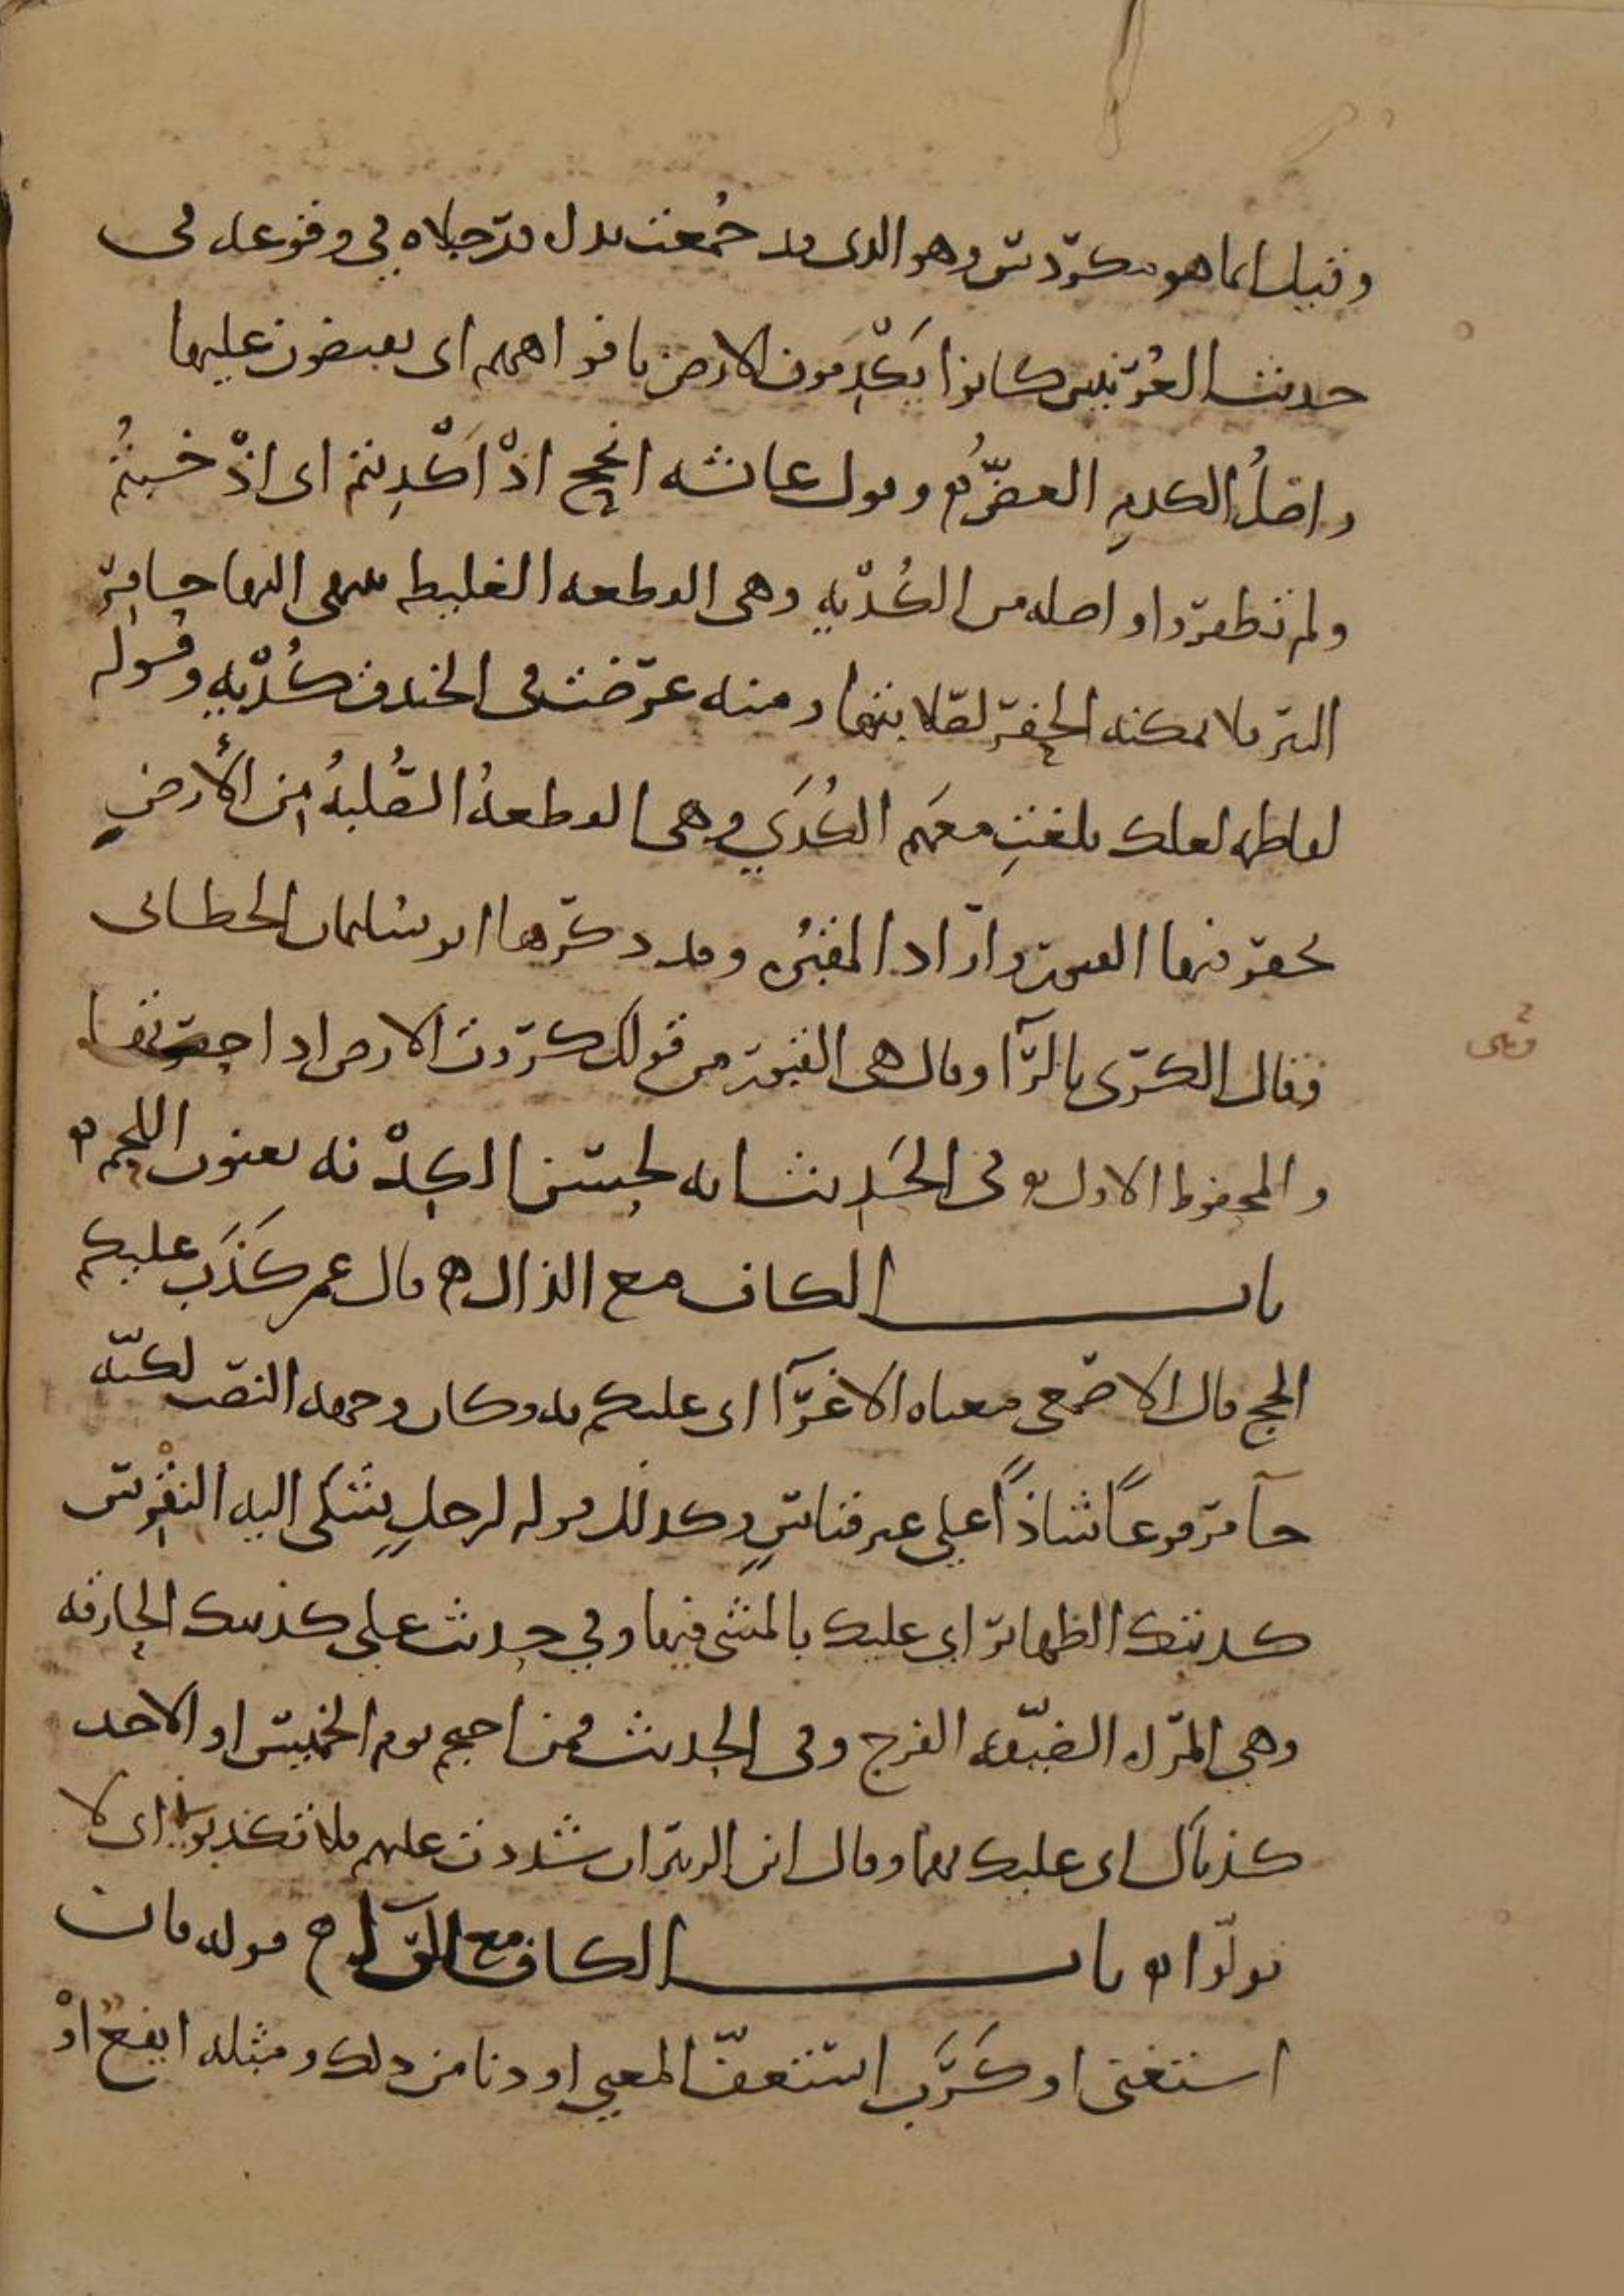 وقيل انما هو مكردس وهو الذى قد جمعت يداه ورجلاه في وقوعه فى
حديث العرنيين كانوا يكدمون الارض بافواههم اى يعضون عليها
واصل الكدم العض وقول عائشه انجح اذ اكديتم اى اذ خبتم
ولم تظفروا واصله من الكدية وهى القطعه الغليظه ينتهى اليها حافر
البئر فلا يمكنه الحفر لصلابتها ومنه عرضت فى الخندق كدية وقوله
لفاطمه لعلك بلغت معهم الكدي وهى القطعة الصلبة من الأرض
تحفر فيها القبور واراد المقبره وقد ذكرها ابو سليمان الخطابى
فقال الكرى بالرآ وقال هى القبور من قولك كروت الارض اذا حفرتها
والمحفوظ الاول وفى الحديث انه لحسن الكدنه يعنون اللحم
باب الكاف مع الذال قال عمر كذب عليكم
الحج قال الاصمعى معناه الاغرآ اى عليكم به وكان وجهه النصب لكنه
جآ مرفوعاً شاذاً على غير قياس وكذلك قوله لرجل شكى اليه النقرس
كذبتك الظهائر اي عليك بالمشى فيها وفي حديث على كذبتك الحارقه
وهي المراه الضيقه الفرج وفى الحديث فمن احتجم يوم الخميس او الاحد
كذباك اى عليك بهما وقال ابن الزبير ان شددت عليهم فلا تكذبوا اى لا
تولوا باب الكاف مع الرآ قوله فان
استغنى او كرب استعف المعنى او دنا من ذلك ومثله ايفع اذ